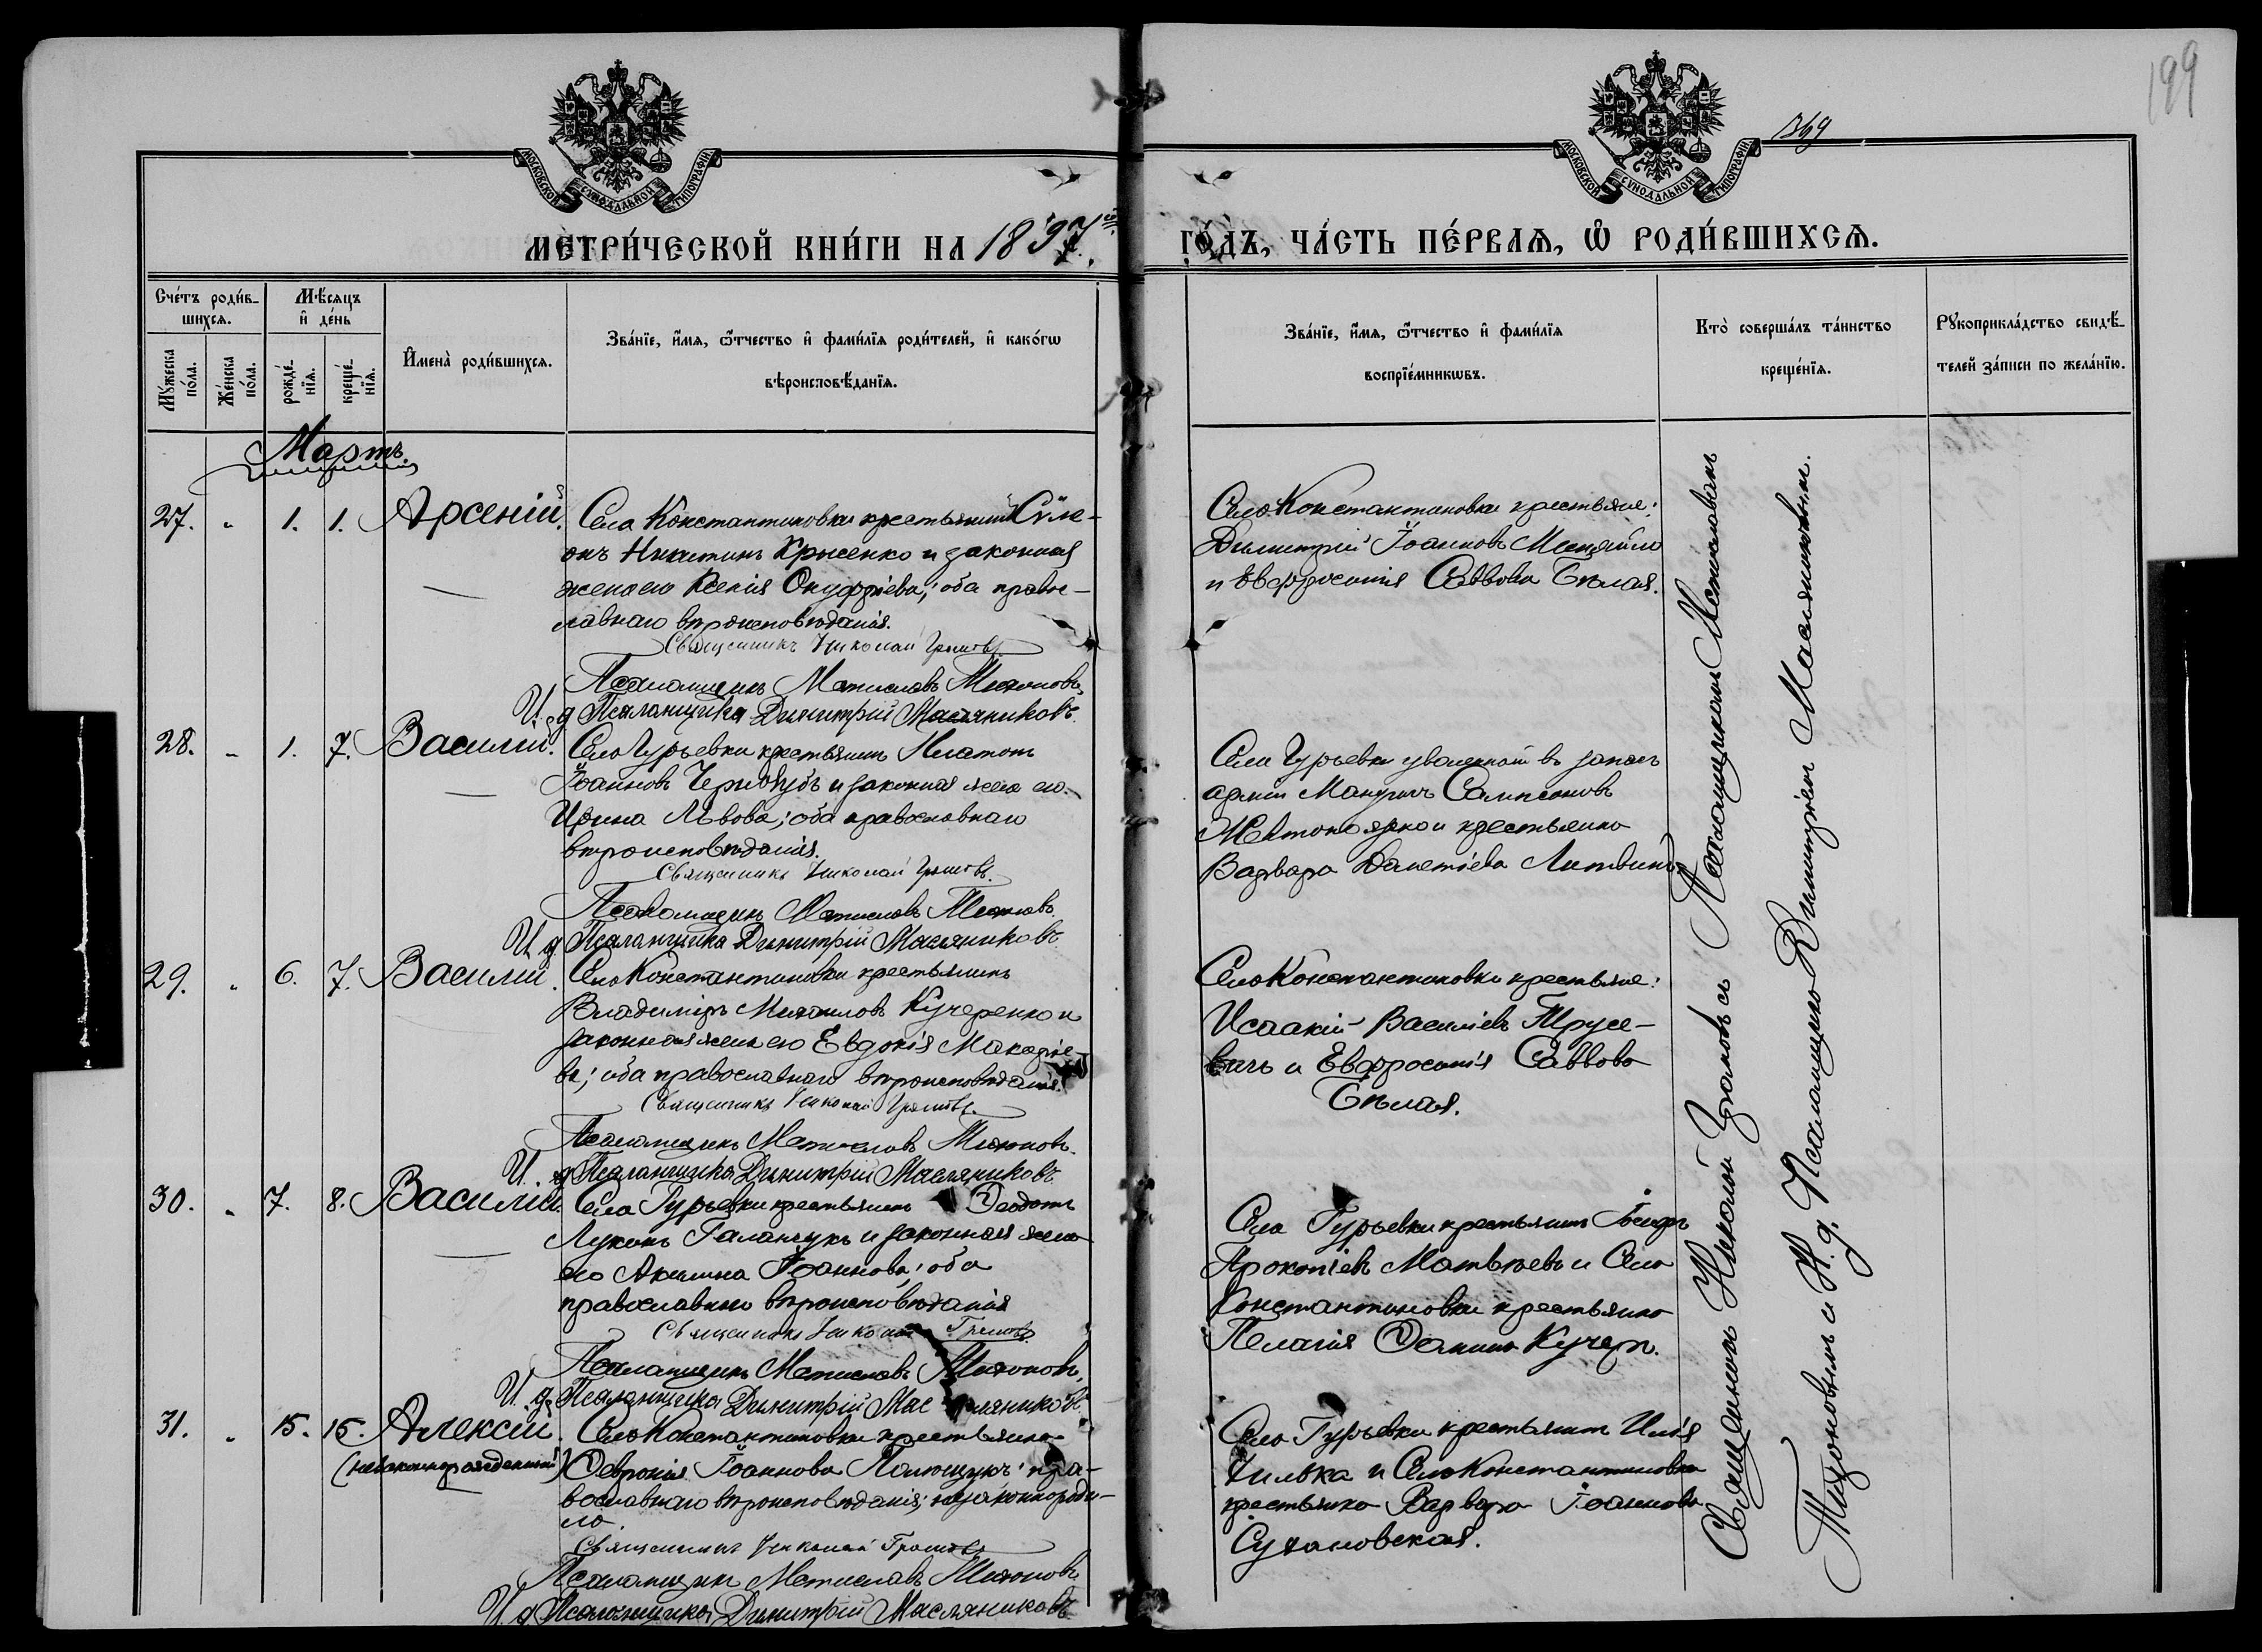 199
369
МОСКОВСКОЙ СѴНОДАЛЬНОЙ ТИПОГРАФІИ
МОСКОВСКОЙ СѴНОДАЛЬНОЙ ТИПОГРАФІИ
МЕТРИ́ЧЕСКОЙ КНИ́ГИ НА 1897й
ГО́ДЪ, ЧА́СТЬ ПЕ́РВАЯ, Ѽ РОДИ́ВШИХСЯ.
Сче́тъ роди́в-
шихся.
Мѣ́сяцъ
и҆ де́нь
Мꙋ́жеска
по́ла.
Же́нска
по́ла.
рожде́-
нїя.
креще́-
нїя.
И҆мена̀ роди́вшихся.
Зва́нїе, и҆́мя, ѻ҆́тчество и҆ фами́лїя роди́телей, и҆ како́гѡ
вѣроисповѣ́данїя.
Зва́нїе, и҆́мя, ѻ҆́тчество и҆ фами́лїя
воспрїе́мникѡвъ.
Кто̀ соверша́лъ та́инство
креще́нїя.
Рꙋкоприкла́дство свидѣ́-
телей за́писи по жела́нїю.
Мартъ.
27. " 1. 1. Арсеній.
Села Константиновки крестьянинъ Сѵме-
онъ Никитинъ Крысенко и законная
жена его Ксенія Онуфріева; оба право-
славнаго вѣроисповѣданія.
Священникъ Николай Громовъ
Псаломщикъ Мстиславъ Тихоновъ.
И. д. Псаломщика Димитрій Масляниковъ.
Села Константиновки крестьяне:
Димитрій Іоанновъ
и Евфросинія Саввова Бѣлая.
28. " 1. 7. Василій.
Села Гурьевки крестьянинъ Платонъ
Іоанновъ Чернозубъ и законная жена его
Ирина Львова; оба православнаго
вѣроисповѣданія.
Священникъ Николай Громовъ.
Псаломщикъ Мстиславъ Тихоновъ.
И. д. Псаломщика Димитрій Масляниковъ.
Села Гурьевки уволенный въ запасъ
арміи Сампсоновъ
и крестьянка
Варвара Литвинъ
29. " 6. 7. Василій.
Села Константиновки крестьянинъ
Владиміръ Михаиловъ Кучеренко и
законная жена его Евдокія Макаріе-
ва; оба православнаго вѣроисповѣданія.
Священникъ Николай Громовъ.
Псаломщикъ Мстиславъ Тихоновъ.
И. д. Псаломщика Димитрій Масляниковъ
Села Константиновки крестьяне:
Исаакій Василіевъ Трусе-
вичъ и Евфросинія Саввова
Бѣлая.
30. " 7. 8. Василій.
Села Гурьевки крестьянинъ Ѳеодотъ
Лукинъ Галанчукъ и законная жена
его Акилина Іоаннова; оба
православнаго вѣроисповѣданія
Священникъ Николай Громовъ
Псаломщикъ Мстиславъ Тихоновъ,
И. д. Псаломщика Димитрій Масляниковъ.
Села Гурьевки крестьянинъ
Прокопіевъ Матвѣевъ и Села
Константиновки крестьянка
Пелагія Ѳомина Кучеръ.
31. " 15. 15. Алексій.
(незаконнорожденный)
Села Константиновки крестьянка
Ѳевронія Іоаннова Полющукъ; пра-
вославнаго вѣроисповѣданія; незаконнороди-
ла.
Священникъ Николай Громовъ
Псаломщикъ Мстиславъ Тихоновъ
И. д. Псаломщика, Димитрій Масляниковъ
Села Гурьевки крестьянинъ Илія
и Села Константиновки
крестьянка Варвара Іоаннова
Сухановская.
Священникъ Николай Громовъ съ Псаломщикомъ Мстиславомъ
Тихоновымъ и И. д. Псаломщика Димитріемъ Масляниковымъ.